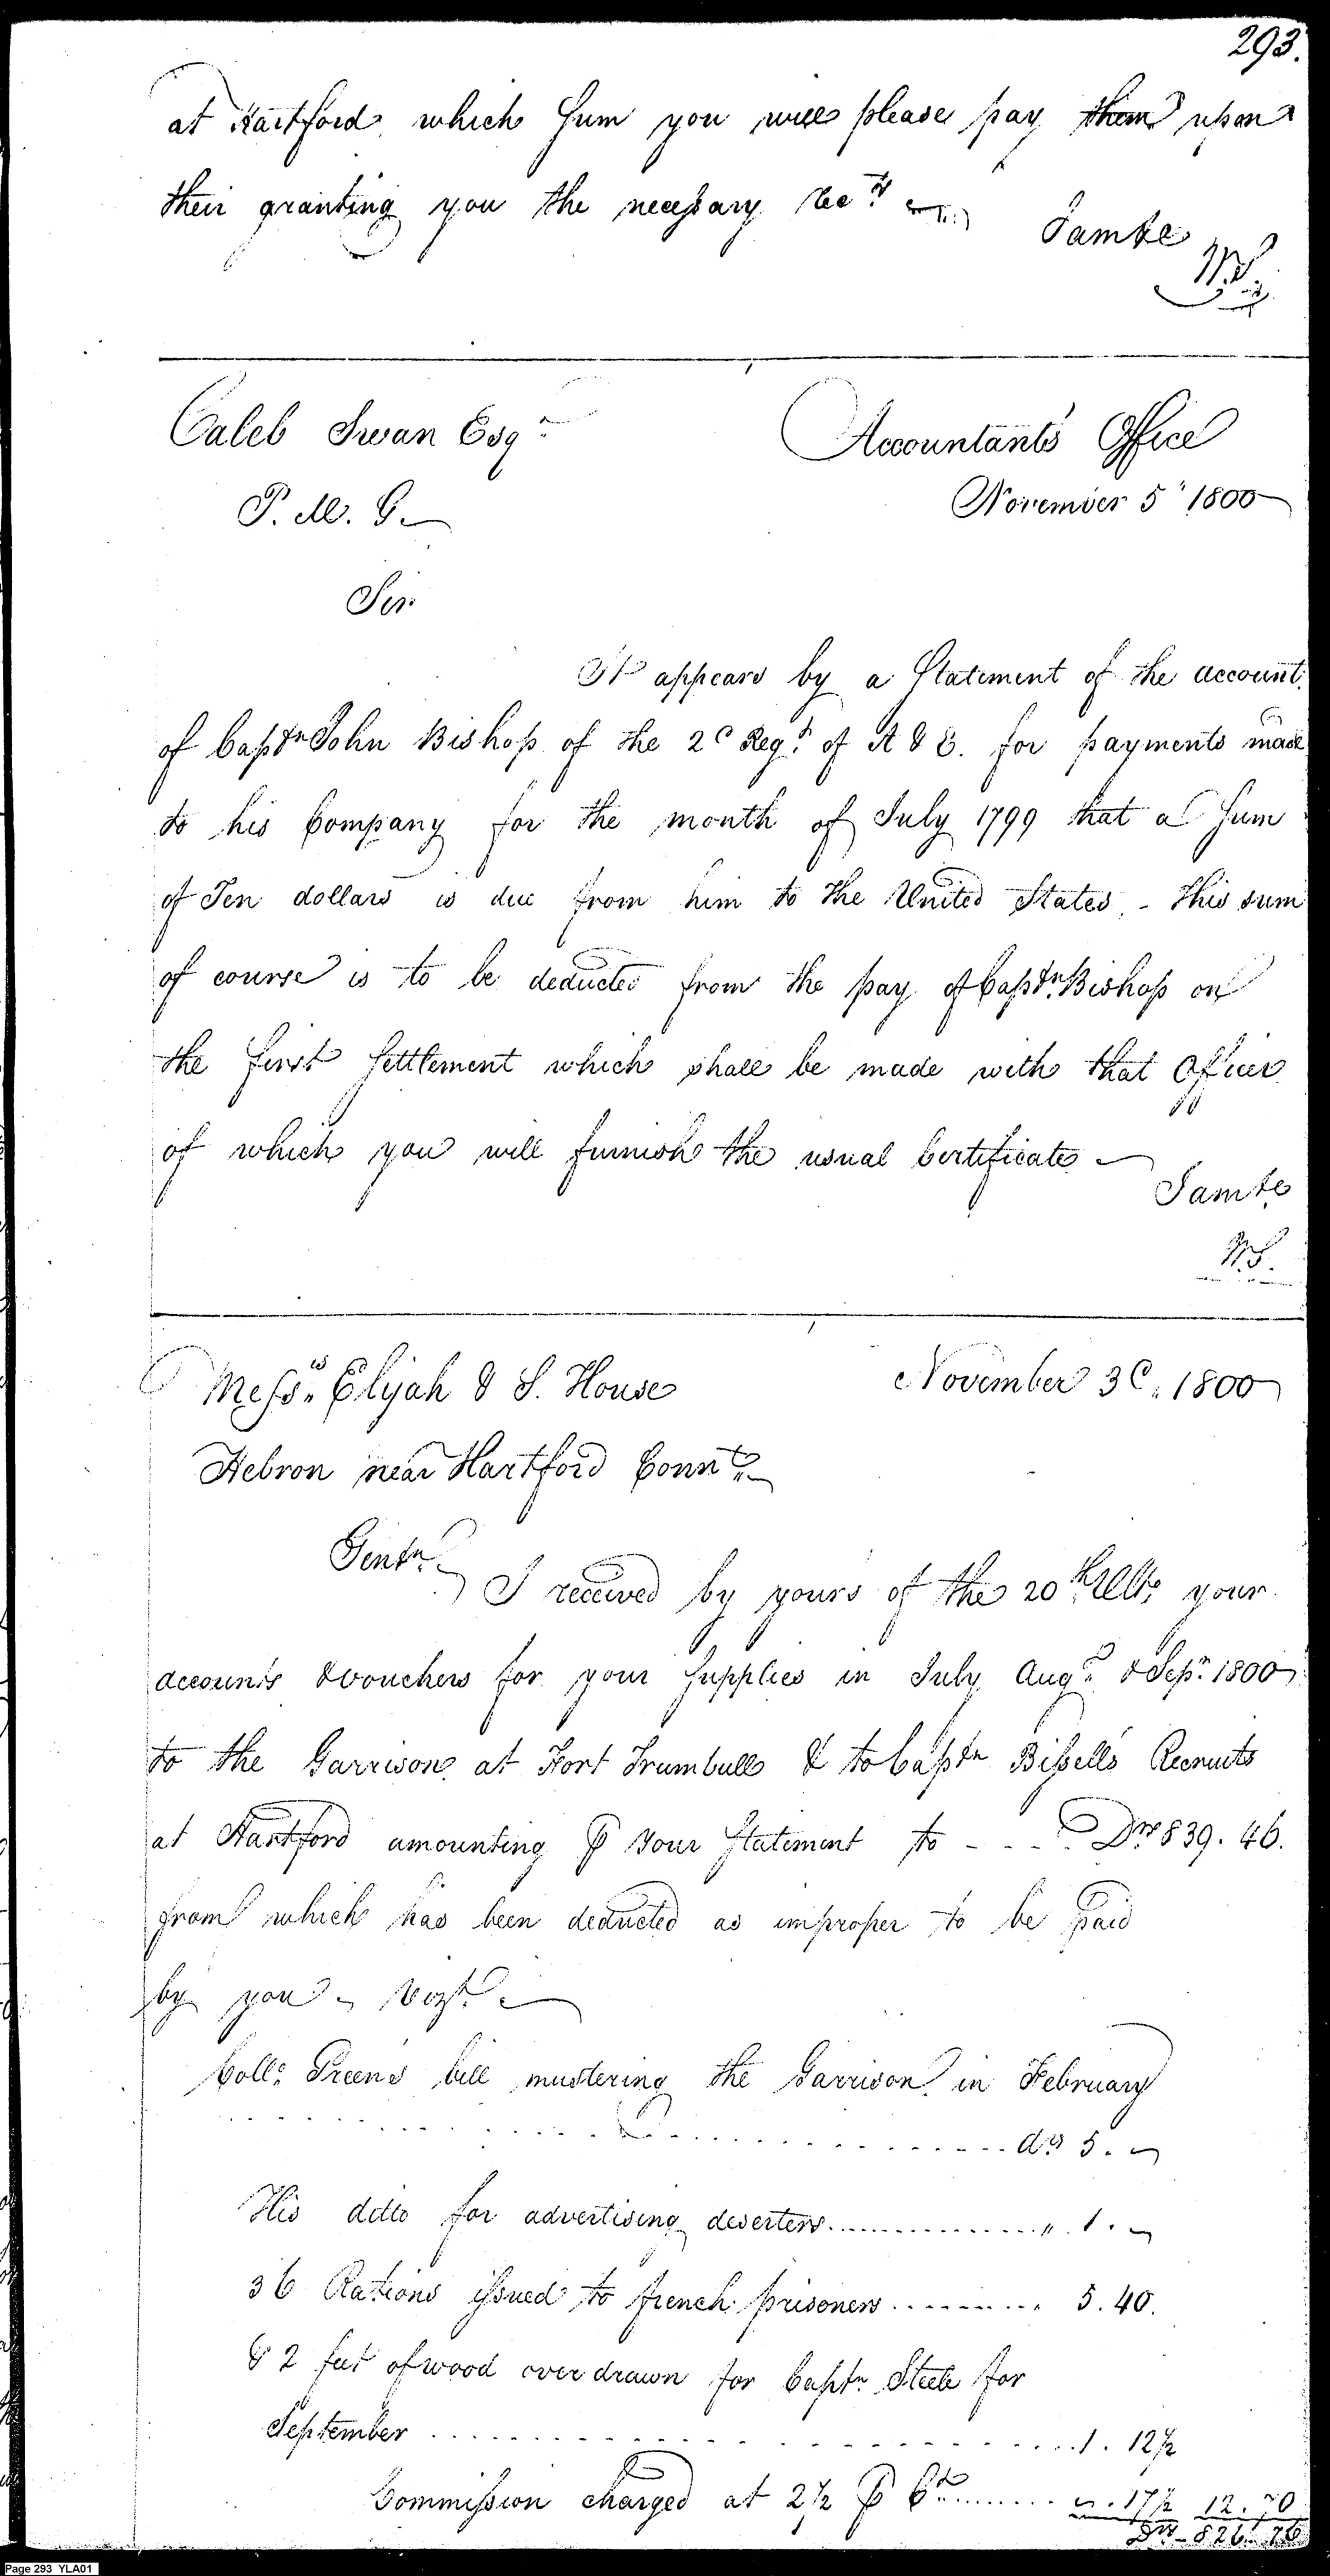 293.
at Hartford which Sum you will please pay them upon
their granting you the necessary rect.
I am &c
W.S.
Caleb Swan Esqr
Accountants Office
P. M. G.
November 5th 1800
Sir
It appears by a Statement of the account
of Captn John Bishop of the 2d Regt of A & E. for payments made
to his Company for the month of July 1799 that a Sum
of Ten dollars is due from him to the United States - This sum
of course is to be deducted from the pay of Captn Bishop on
the first Settlement which shall be made with that Officer
of which you will furnish the usual Certificate
I am &c
W.S.
Messrs Elijah & S. House
November 3d 1800
Hebron near Hartford Connt
Gentn
I received by yours of the 20th Ulto your
accounts & vouchers for your Supplies in July Augt & Sepr 1800
to the Garrison at Fort Trumbull & to Captn Bissells Recruits
at Hartford amounting ⅌ your Statement to - - - Drs 839. 46.
from which has been deducted as improper to be paid
by you - Vizt
Colls Green's bill mustering the Garrison in February
ds 5.
His ditto for advertising deserters ........ " 1.
36 Rations issued to french prisoners ........ 5.40.
& 2 feet of wood over drawn for Captn Steele for
September ........ 1. 12½
Commission charged at 2½ ⅌ Ct ........ .17½ 12.70
Drs 826.76
Page 293 YLA01